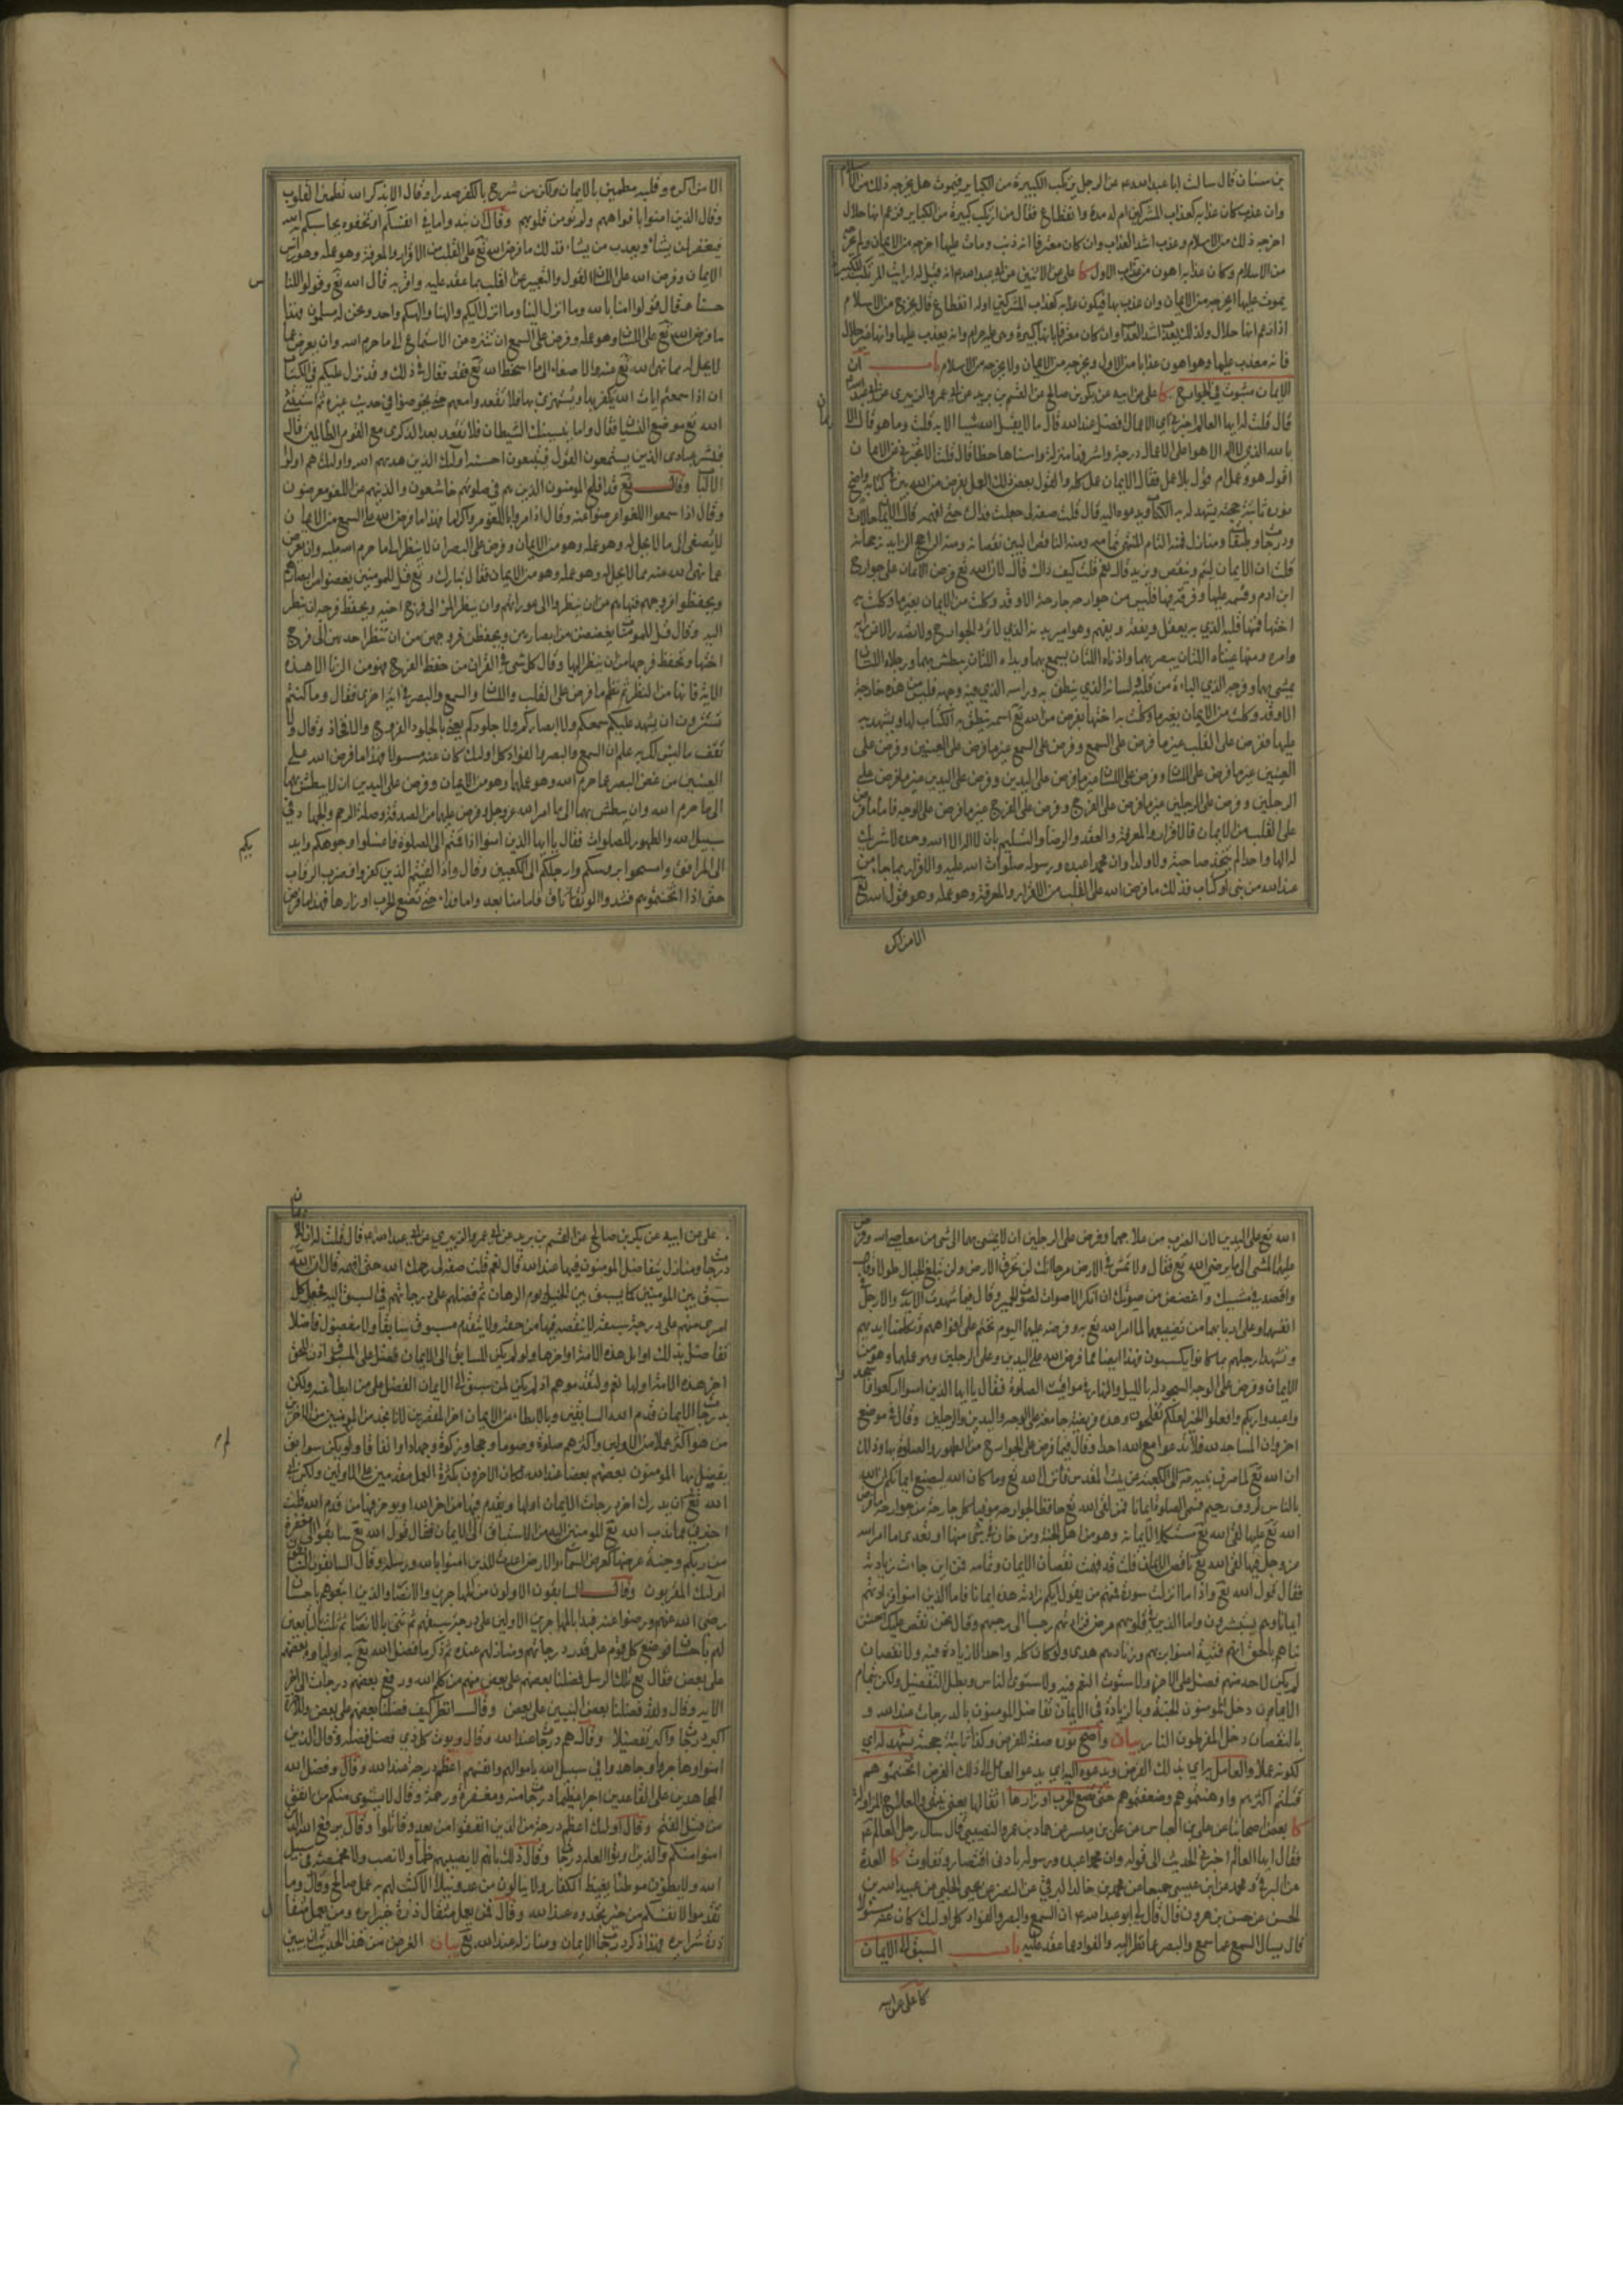 بن سنان قال سالت ابا عبد الله ع عن الرجل يرتكب الكبيرة من الكباير فيموت هل يخرجه ذلك من الاسلام
وان عذب كان عذابه كعذاب المشركين ام له مدة وانقطاع فقال من ارتكب كبيرة من الكباير فزعم انها حلال
اخرجه ذلك من الاسلام وعذب اشد العذاب وان كان معترفا انه ذنب ومات عليها اخرجه من الايمان ولم يخرجه
من الاسلام وكان عذابه اهون من عذاب الاول كا علي عن الاثنين عن ابي عبد الله ع انه قيل له ارايت المرتكب للكبيرة
يموت عليها اتخرجه من الايمان وان عذب بها فيكون عذابه كعذاب المشركين اوله انقطاع قال يخرج من الاسلام
اذا زعم انها حلال ولذلك يعذب اشد العذاب وان كان معترفا بانها كبيرة وهي عليه حرام وانه يعذب عليها وانها غير حلال
فانه معذب عليها وهو اهون عذابا من الاول ويخرجه من الايمان ولا يخرجه من الاسلام باب ان
الايمان مبثوث في الجوارح كا علي عن ابيه عن بكر بن صالح عن القسم بن بريد عن ابي عمرو الزبيري عن ابي عبد الله
قال قلت له ايها العالم اخبرني اي الاعمال افضل عند الله قال ما لا يقبل الله شيئا الا به قلت وما هو قال الايمان
بالله الذي لا اله الا هو اعلى الاعمال درجة واشرفها منزلة واسناها حظا قال قلت الا تخبرني عن الايمان
اقول هو وعمل ام قول بلا عمل فقال الايمان عمل كله والقول بعض ذلك العمل بفرض من الله بين في كتابه واضح
نوره ثابتة حجته يشهد له به الكتاب ويدعوه اليه قال قلت صفه لي جعلت فداك حتى افهمه قال الايمان حالات
ودرجات وطبقات ومنازل فمنه التام المنتهي تمامه ومنه الناقص البين نقصانه ومنه الراجح الزايد رجحانه
قلت ان الايمان ليتم وينقص ويزيد قال نعم قلت كيف ذاك قال لان الله تع فرض الايمان على جوارح
ابن ادم وقسمه عليها وفرقه فيها فليس من جوارحه جارحة الا وقد وكلت من الايمان بغير ما وكلت به
اختها فمنها قلبه الذي به يعقل ويفقه ويفهم وهو امير بدنه الذي لا ترد الجوارح ولا تصدر الا عن رايه
وامره ومنها عيناه اللتان يبصر بهما واذناه اللتان يسمع بهما ويداه اللتان يبطش بهما ورجلاه اللتان
يمشي بهما وفرجه الذي الباءة من قبله ولسانه الذي ينطق به وراسه الذي فيه وجهه فليس من هذه جارحة
الا وقد وكلت من الايمان بغير ما وكلت به اختها بفرض من الله تع اسمه ينطق به الكتاب لها ويشهد به
عليها ففرض على القلب غير ما فرض على السمع وفرض على السمع غير ما فرض على العينين وفرض على
العينين غير ما فرض على اللسان وفرض على اللسان غير ما فرض على اليدين وفرض على اليدين غير ما فرض على
الرجلين وفرض على الرجلين غير ما فرض على الفرج وفرض على الفرج غير ما فرض على الوجه فاما ما فرض
على القلب من الايمان فالاقرار والمعرفة والعقد والرضا والتسليم بان لا اله الا الله وحده لا شريك
له الها واحدا لم يتخذ صاحبة ولا ولدا وان محمدا عبده ورسوله صلوات الله عليه واله والاقرار بما جاء من
عند الله من نبي او كتاب فذلك ما فرض الله على القلب من الاقرار والمعرفة وهو عمله وهو قول الله تع
الا من اكره
الا من اكره وقلبه مطمئن بالايمان ولكن من شرح بالكفر صدرا وقال الا بذكر الله تطمئن القلوب
وقال الذين امنوا بافواههم ولم تؤمن قلوبهم وقال ان تبدوا ما في انفسكم او تخفوه يحاسبكم به الله
فيغفر لمن يشاء ويعذب من يشاء فذلك ما فرض الله تع على القلب من الاقرار والمعرفة وهو عمله وهو راس
الايمان وفرض الله على اللسان القول والتعبير عن القلب بما عقد عليه واقر به قال الله تع وقولوا للناس
حسنا وقال قولوا امنا بالله وما انزل الينا وما انزل اليكم والهنا والهكم واحد ونحن له مسلمون فهذا
ما فرض الله تع على اللسان وهو عمله وفرض على السمع ان يتنزه عن الاستماع الى ما حرم الله وان يعرض عما
لا يحل له مما نهى الله تع عنه والاصغاء الى ما اسخط الله تع فقال في ذلك وقد نزل عليكم في الكتاب
ان اذا سمعتم ايات الله يكفر بها ويستهزئ بها فلا تقعدوا معهم حتى يخوضوا في حديث غيره ثم استثنى
الله تع موضع النسيان فقال واما ينسينك الشيطان فلا تقعد بعد الذكرى مع القوم الظالمين وقال
فبشر عبادي الذين يستمعون القول فيتبعون احسنه اولئك الذين هديهم الله واولئك هم اولوا
الالباب وقال تع قد افلح المؤمنون الذين هم في صلوتهم خاشعون والذينهم عن اللغو معرضون
وقال اذا سمعوا اللغو اعرضوا عنه وقال اذا مروا باللغو مروا كراما فهذا ما فرض الله على السمع من الايمان
لا يصغي الى ما لا يحل له وهو عمله وهو من الايمان وفرض على البصر ان لا ينظر الى ما حرم الله عليه وان يعرض
عما نهى الله عنه مما لا يحل له وهو عمله وهو من الايمان فقال تبارك وتع قل للمؤمنين يغضوا من ابصارهم
ويحفظوا فروجهم فنهاهم من ان ينظروا الى عوراتهم وان ينظر المرء الى فرج اخيه ويحفظ فرجه ان ينظر
اليه وقال قل للمؤمنات يغضضن من ابصارهن ويحفظن فروجهن من ان تنظر احديهن الى فرج
اختها وتحفظ فرجها من ان ينظر اليها وقال كل شيء في القران من حفظ الفرج فهو من الزنا الا هذه
الاية فانها من النظر ثم نظم ما فرض على القلب واللسان والسمع والبصر في اية اخرى فقال وما كنتم
تستترون ان يشهد عليكم سمعكم ولا ابصاركم ولا جلودكم يعني بالجلود الفروج والافخاذ وقال ولا
تقف ما ليس لك به علم ان السمع والبصر والفؤاد كل اولئك كان عنه مسؤولا فهذا ما فرض الله على
العينين من غض البصر عما حرم الله وهو عملهما وهو من الايمان وفرض على اليدين ان لا يبطش بهما
الى ما حرم الله وان يبطش بهما الى ما امر الله عز وجل وفرض عليهما من الصدقة وصلة الرحم والجهاد في
سبيل الله والطهور للصلوات فقال يا ايها الذين امنوا اذا قمتم الى الصلوة فاغسلوا وجوهكم وايديكم
الى المرافق وامسحوا برءوسكم وارجلكم الى الكعبين وقال واذا لقيتم الذين كفروا فضرب الرقاب
حتى اذا اثخنتموهم فشدوا الوثاق فاما منا بعد واما فداء حتى تضع الحرب اوزارها فهذا ما فرض
الله تع على اليدين لان الضرب من علاجهما وفرض على الرجلين ان لا يمشي بهما الى شيء من معاصي الله وفرض
عليهما المشي الى ما يرضي الله تع فقال ولا تمش في الارض مرحا انك لن تخرق الارض ولن تبلغ الجبال طولا وقال
واقصد في مشيك واغضض من صوتك ان انكر الاصوات لصوت الحمير وقال فيما شهدت الايدي والارجل على
انفسهما وعلى اربابهما من تضييعهما لما امر الله تع به وفرضه عليهما اليوم نختم على افواههم وتكلمنا ايديهم
وتشهد ارجلهم بما كانوا يكسبون فهذا ايضا مما فرض الله على اليدين وعلى الرجلين وهو عملهما وهو من
الايمان وفرض على الوجه السجود له بالليل والنهار في مواقيت الصلوة فقال يا ايها الذين امنوا اركعوا واسجدوا
واعبدوا ربكم وافعلوا الخير لعلكم تفلحون وهذه فريضة جامعة على الوجه واليدين والرجلين وقال في موضع
اخر وان المساجد لله فلا تدعوا مع الله احدا وقال فيما فرض على الجوارح من الطهور والصلوة بها وذلك
ان الله تع لما صرف نبيه ص الى الكعبة عن بيت المقدس فانزل الله تع وما كان الله ليضيع ايمانكم ان الله
بالناس لرءوف رحيم فسمى الصلوة ايمانا فمن لقي الله تع حافظا لجوارحه موفيا كل جارحة من جوارحه ما فرض
الله تع عليها لقي الله تع مستكملا لايمانه وهو من اهل الجنة ومن خان في شيء منها او تعدى ما امر الله
عز وجل فيها لقي الله تع ناقص الايمان قلت قد فهمت نقصان الايمان وتمامه فمن اين جاءت زيادته
فقال قول الله تع واذا ما انزلت سورة فمنهم من يقول ايكم زادته هذه ايمانا فاما الذين امنوا فزادتهم
ايمانا وهم يستبشرون واما الذين في قلوبهم مرض فزادتهم رجسا الى رجسهم وقال نحن نقص عليك
نباهم بالحق انهم فتية امنوا بربهم وزدناهم هدى ولو كان كله واحدا لا زيادة فيه ولا نقصان
لم يكن لاحد منهم فضل على الاخر ولاستوت النعم فيه ولاستوى الناس وبطل التفضيل ولكن بتمام
الايمان دخل المؤمنون الجنة وبالزيادة في الايمان تفاضل المؤمنون بالدرجات عند الله و
بالنقصان دخل المفرطون النار بيان واضح نوره صفة للفرض وكذا ثابتة حجته يشهد له اي
لكونه عملا والعامل اي بذلك الفرض ويدعوه اليه اي يدعو العامل الى ذلك الفرض اثخنتموهم
قتلتم اكثرهم واوهنتموهم وضعفتموهم حتى تضع الحرب اوزارها اثقالها يعني ينقضي والعلاج المزاولة
كا بعض اصحابنا عن علي بن العباس عن علي بن ميسر عن حماد بن عمرو النصيبي قال سال رجل العالم ع
فقال ايها العالم اخبرني الحديث الى قوله وان محمدا عبده ورسوله بادنى اختصار وتفاوت كا العدة
عن البرقي ومحمد عن ابن عيسى جميعا عن محمد بن خالد البرقي عن النضر عن يحيى الحلبي عن عبيد الله بن
الحسن عن حسن بن هرون قال قال لي ابو عبد الله ع ان السمع والبصر والفؤاد كل اولئك كان عنه مسؤولا
قال يسال السمع عما سمع والبصر عما نظر اليه والفؤاد عما عقد عليه باب السبق الى الايمان
كا علي عن ابيه
علي عن ابيه عن بكر بن صالح عن القسم بن بريد عن ابي عمرو الزبيري عن ابي عبد الله ع قال قلت له ان للايمان
درجات ومنازل يتفاضل المؤمنون فيها عند الله قال نعم قلت صفه لي رحمك الله حتى افهمه قال ان الله
سبق بين المؤمنين كما يسبق بين الخيل يوم الرهان ثم فضلهم على درجاتهم في السبق اليه فجعل كل
امرئ منهم على درجة سبقه لا ينقصه فيها من حقه ولا يتقدم مسبوق سابقا ولا مفضول فاضلا
تفاضل بذلك اوايل هذه الامة واواخرها ولو لم يكن للسابق الى الايمان فضل على المسبوق اذن للحق
اخر هذه الامة اولها نعم ولتقدموهم اذا لم يكن لمن سبق الى الايمان الفضل على من ابطا عنه ولكن
بدرجات الايمان قدم الله السابقين وبالابطاء عن الايمان اخر المقصرين لانا نجد من المؤمنين من الاخرين
من هو اكثر عملا من الاولين واكثرهم صلوة وصوما وحجا وزكوة وجهادا وانفاقا ولو لم يكن سوابق
يفضل بها المؤمنون بعضهم بعضا عند الله لكان الاخرون بكثرة العمل مقدمين على الاولين ولكن ابى
الله تع ان يدرك اخر درجات الايمان اولها ويقدم فيها من اخر الله او يؤخر فيها من قدم الله قلت
اخبرني عما ندب الله تع المؤمنين اليه من الاستباق الى الايمان فقال قول الله تع سابقوا الى مغفرة
من ربكم وجنة عرضها كعرض السماء والارض اعدت للذين امنوا بالله ورسله وقال السابقون السابقون
اولئك المقربون وقال السابقون الاولون من المهاجرين والانصار والذين اتبعوهم باحسان
رضي الله عنهم ورضوا عنه فبدا بالمهاجرين الاولين على درجة سبقهم ثم ثنى بالانصار ثم ثلث بالتابعين
لهم باحسان فوضع كل قوم على قدر درجاتهم ومنازلهم عنده ثم ذكر ما فضل الله تع به اولياءه بعضهم
على بعض فقال تع تلك الرسل فضلنا بعضهم على بعض منهم من كلم الله ورفع بعضهم درجات الى اخر
الاية وقال ولقد فضلنا بعض النبيين على بعض وقال انظر كيف فضلنا بعضهم على بعض وللاخرة
اكبر درجات واكبر تفضيلا وقال هم درجات عند الله وقال ويؤت كل ذي فضل فضله وقال الذين
امنوا وهاجروا وجاهدوا في سبيل الله باموالهم وانفسهم اعظم درجة عند الله وقال وفضل الله
المجاهدين على القاعدين اجرا عظيما درجات منه ومغفرة ورحمة وقال لا يستوي منكم من انفق
من قبل الفتح وقاتل اولئك اعظم درجة من الذين انفقوا من بعد وقاتلوا وقال يرفع الله الذين
امنوا منكم والذين اوتوا العلم درجات وقال ذلك بانهم لا يصيبهم ظما ولا نصب ولا مخمصة في سبيل
الله ولا يطؤن موطئا يغيظ الكفار ولا ينالون من عدو نيلا الا كتب لهم به عمل صالح وقال وما
تقدموا لانفسكم من خير تجدوه عند الله وقال فمن يعمل مثقال ذرة خيرا يره ومن يعمل مثقال
ذرة شرا يره فهذا ذكر درجات الايمان ومنازله عند الله تع بيان الغرض من هذا الحديث ان يبين